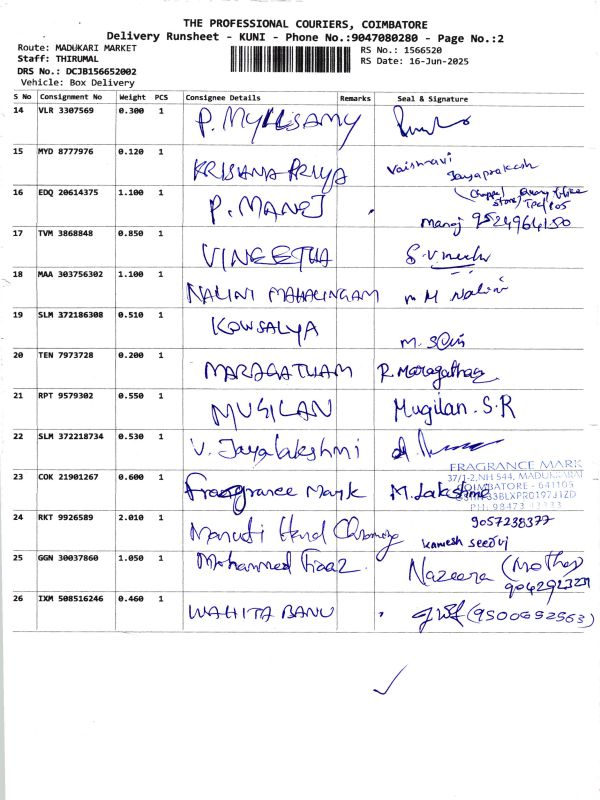 THE PROFESSIONAL COURIERS, COIMBATORE
Delivery Runsheet - KUNI - Phone No.:9047080280 - Page No.:2
Route: MADUKARI MARKET
RS No.: 1566520
Staff: THIRUMAL
RS Date: 16-Jun-2025
DRS No.: DCJB156652002
Vehicle: Box Delivery
S No Consignment No Weight PCS Consignee Details Remarks Seal & Signature
14 VLR 3307569 0.300 1 P. MYILSAMY
15 MYD 8777976 0.120 1 KRISHNA PRIYA Vaishnavi Jayaprakash
16 EDQ 20614375 1.100 1 P. MANOJ Manoj 9524964150
17 TVM 3868848 0.850 1 VINEETHA
18 MAA 303756302 1.100 1 NALINI MAHALINGAM M Nalini
19 SLM 372186308 0.510 1 KOWSALYA
20 TEN 7973728 0.200 1 MARAGATHAM R. Maragatham
21 RPT 9579302 0.550 1 MUGILAN Mugilan. S.R
22 SLM 372218734 0.530 1 V. Jayalakshmi
FRAGRANCE MARK
37/1-2, NH 544, MADUKARAI
COIMBATORE - 641105
23 COK 21901267 0.600 1 Fragrance Mark M. Lakshme
24 RKT 9926589 2.010 1 Maruti Hard Chrome 9057238377
25 GGN 30037860 1.050 1 Mohammed Fiaaz Nazeera (Mother)
26 IXM 508516246 0.460 1 WAHITA BANU (9500692563)